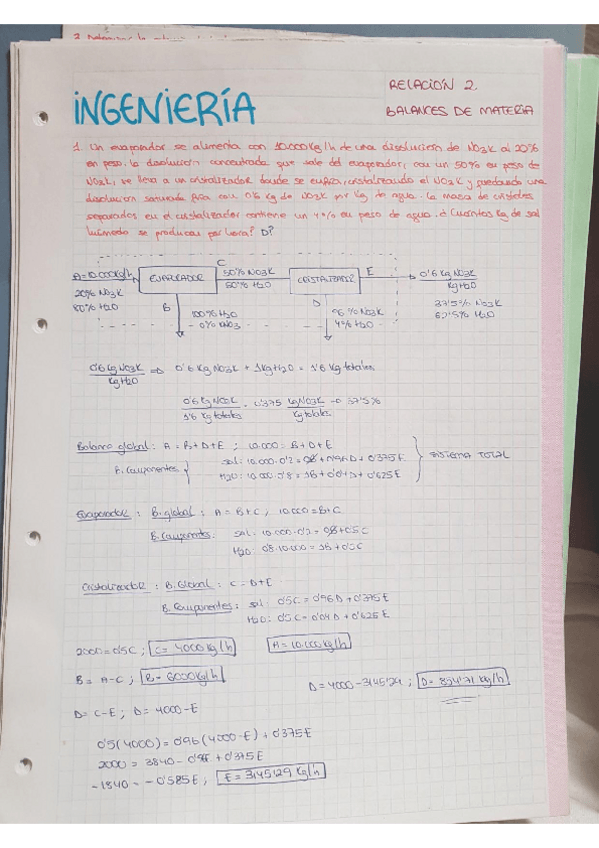 RELACIÓN 2
INGENIERÍA
BALANCES DE MATERIA
1. Un evaporador se alimenta con 10.000 Kg/h de una disolución de NO3K al 20%
en peso. La disolución concentrada que sale del evaporador, con un 50% en peso de
NO3K, se lleva a un cristalizador donde se enfría, cristalizando el NO3K y quedando una
disolución saturada fría con 0'6 kg de NO3K por Kg de agua. La masa de cristales
separados en el cristalizador contiene un 4% en peso de agua. ¿Cuántos Kg de sal
húmeda se producen por hora? D?
C
A=10.000Kg/h
EVAPORADOR
50% NO3K
50% H2O
CRISTALIZAD?
E
0'6 Kg NO3K
Kg H2O
20% NO3K
80% H2O
B
100% H2O
0% KNO3
D
96% NO3K
4% H2O
37'5% NO3K
62'5% H2O
0'6 Kg NO3K
Kg H2O
⇒ 0'6 Kg NO3K + 1Kg H2O = 1'6 Kg totales
0'6 Kg NO3K
1'6 Kg totales
0'375 Kg NO3K
Kg totales
→ 37'5%
Balance global: A = B+D+E ; 10.000 = B+D+E
B. Componentes
Sal: 10.000·0'2 = 0B + 0'96D + 0'375E
H2O: 10.000·0'8 = 1B + 0'04D + 0'625E
SISTEMA TOTAL
Evaporador : B. global : A = B+C, 10.000=B+C
B. Componentes: SAL: 10.000·0'2 = 0B+0'5C
H2O: 0'8·10.000 = 1B + 0'5C
Cristalizador : B. Global : C = D+E
B. Componentes: sal: 0'5C = 0'96D + 0'375E
H2O: 0'5C = 0'04D + 0'625E
2000 = 0'5C ; C = 4000 Kg/h
A = 10.000 Kg/h
B = A-C ; B = 6000 Kg/h
D = 4000 - 3145'29 ; D = 854'71 Kg/h
D = C-E ; D = 4000-E
0'5(4000) = 0'96(4000-E) + 0'375E
2000 = 3840 - 0'96E + 0'375E
-1840 = -0'585E ; E = 3145'29 Kg/h